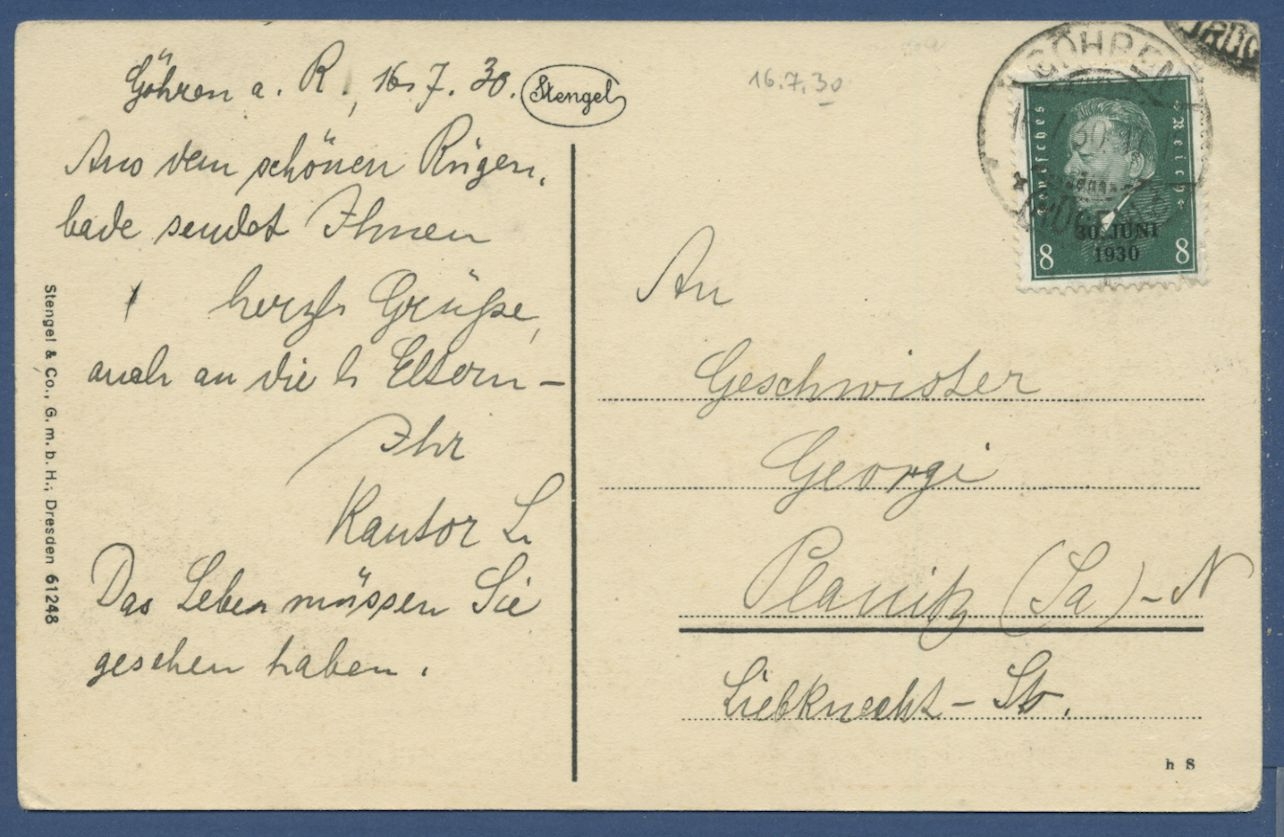 Göhren a. R., 16. 7. 30.
Stengel
Aus dem schönen Rügen-
bade sendet Ihnen
herzl. Grüße,
auch an die l. Eltern –
Ihr
Kantor L.
Das Leben müssen Sie
gesehen haben.
Stengel & Co., G. m. b. H., Dresden 61248
16.7.30
GÖHREN
(RÜGEN)
Deutsches Reich
30. JUNI
1930
8 8
An
Geschwister
Georgi
Planitz (Sa) - N
Liebknecht - Str.
h S